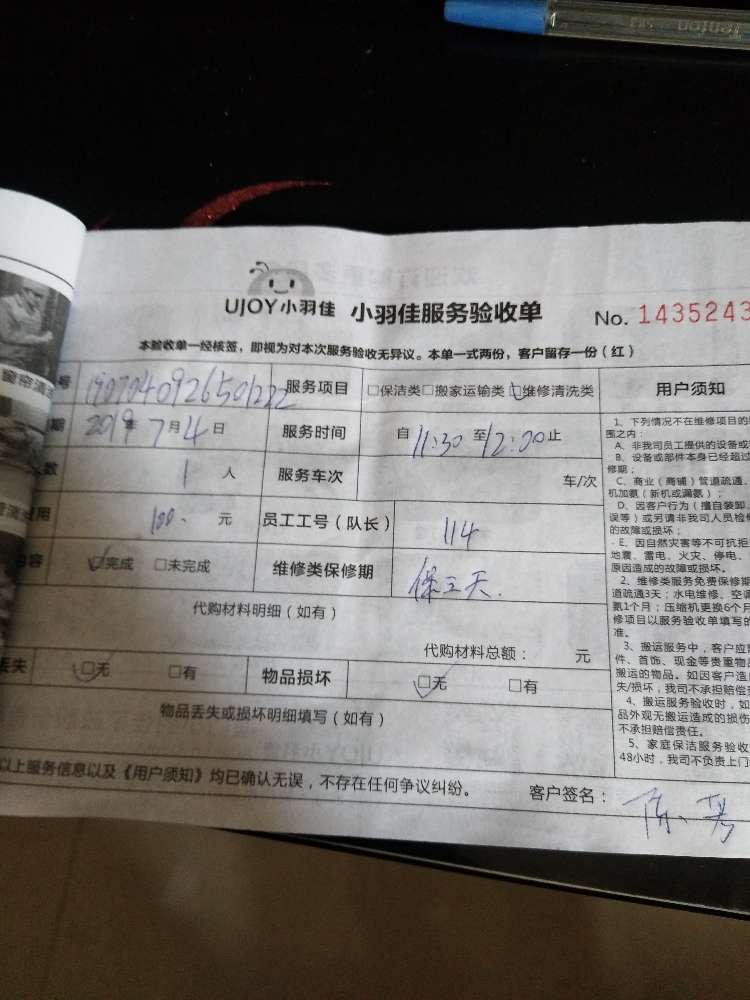 UJOY小羽佳 小羽佳服务验收单 No. 1435243
本验收单一经核签，即视为对本次服务验收无异议。本单一式两份，客户留存一份（红）
号 1907040926501222 服务项目 □保洁类□搬家运输类□维修清洗类 用户须知
期 2019年7月4日 服务时间 自11:30至12:00止
数 1 人 服务车次 车/次
用 100. 元 员工工号（队长） 114
内容 □完成 □未完成 维修类保修期 保三天.
代购材料明细（如有）
代购材料总额： 元
丢失 □无 □有 物品损坏 □无 □有
物品丢失或损坏明细填写（如有）
以上服务信息以及《用户须知》均已确认无误，不存在任何争议纠纷。 客户签名：
1、下列情况不在维修项目的
围之内：
A、非我司员工提供的设备或
B、设备或部件本身已经超过
修期；
C、商业（商铺）管道疏通、
机加氨（新机或漏氨）；
D、因客户行为（擅自装卸、
误等）或另请非我司人员检修
的故障或损坏；
E、因自然灾害等不可抗拒
地震、雷电、火灾、停电、
原因造成的故障或损坏。
2、维修类服务免费保修期
道疏通3天；水电维修、空调
氨1个月；压缩机更换6个月
修项目以服务验收单填写的
准。
3、搬运服务中，客户应
件、首饰、现金等贵重物品
搬运的物品。如因客户造
失/损坏，我司不承担赔偿
4、搬运服务验收时，如
品外观无搬运造成的损伤
不承担赔偿责任。
5、家庭保洁服务验收
48小时，我司不负责上门
窗帘清洗